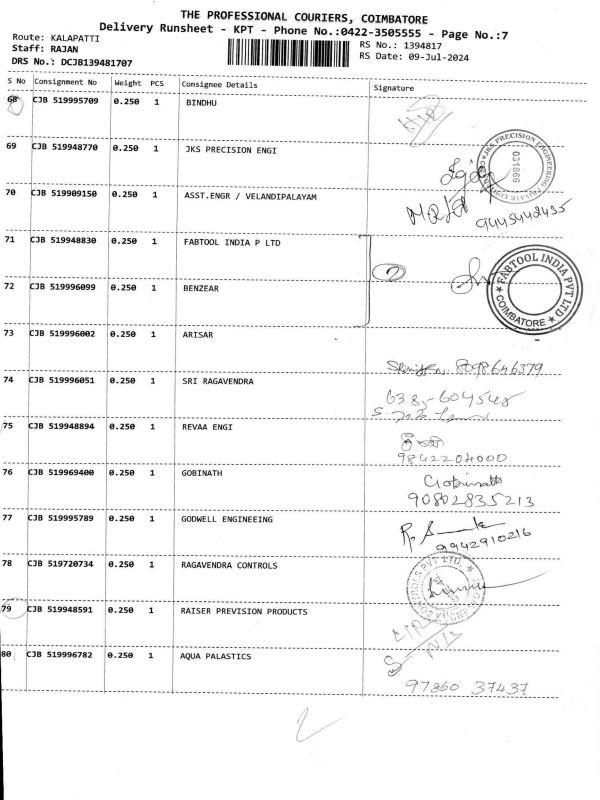 THE PROFESSIONAL COURIERS, COIMBATORE
Delivery Runsheet - KPT - Phone No.:0422-3505555 - Page No.:7
Route: KALAPATTI
RS No.: 1394817
Staff: RAJAN
RS Date: 09-Jul-2024
DRS No.: DCJB139481707
S No Consignment No Weight PCS Consignee Details Signature
68 CJB 519995709 0.250 1 BINDHU
69 CJB 519948770 0.250 1 JKS PRECISION ENGI
JKS PRECISION ENGINEERING PRIVATE LIMITED
031866
70 CJB 519909150 0.250 1 ASST.ENGR / VELANDIPALAYAM
9445442435
71 CJB 519948830 0.250 1 FABTOOL INDIA P LTD
2
FABTOOL INDIA PVT LTD
COIMBATORE
72 CJB 519996099 0.250 1 BENZEAR
73 CJB 519996002 0.250 1 ARISAR
8098646379
74 CJB 519996051 0.250 1 SRI RAGAVENDRA
6385-604548
75 CJB 519948894 0.250 1 REVAA ENGI
9842204000
76 CJB 519969400 0.250 1 GOBINATH
Gobinath
90802835213
77 CJB 519995789 0.250 1 GODWELL ENGINEEING
9942910216
78 CJB 519720734 0.250 1 RAGAVENDRA CONTROLS
79 CJB 519948591 0.250 1 RAISER PREVISION PRODUCTS
80 CJB 519996782 0.250 1 AQUA PALASTICS
97860 37437